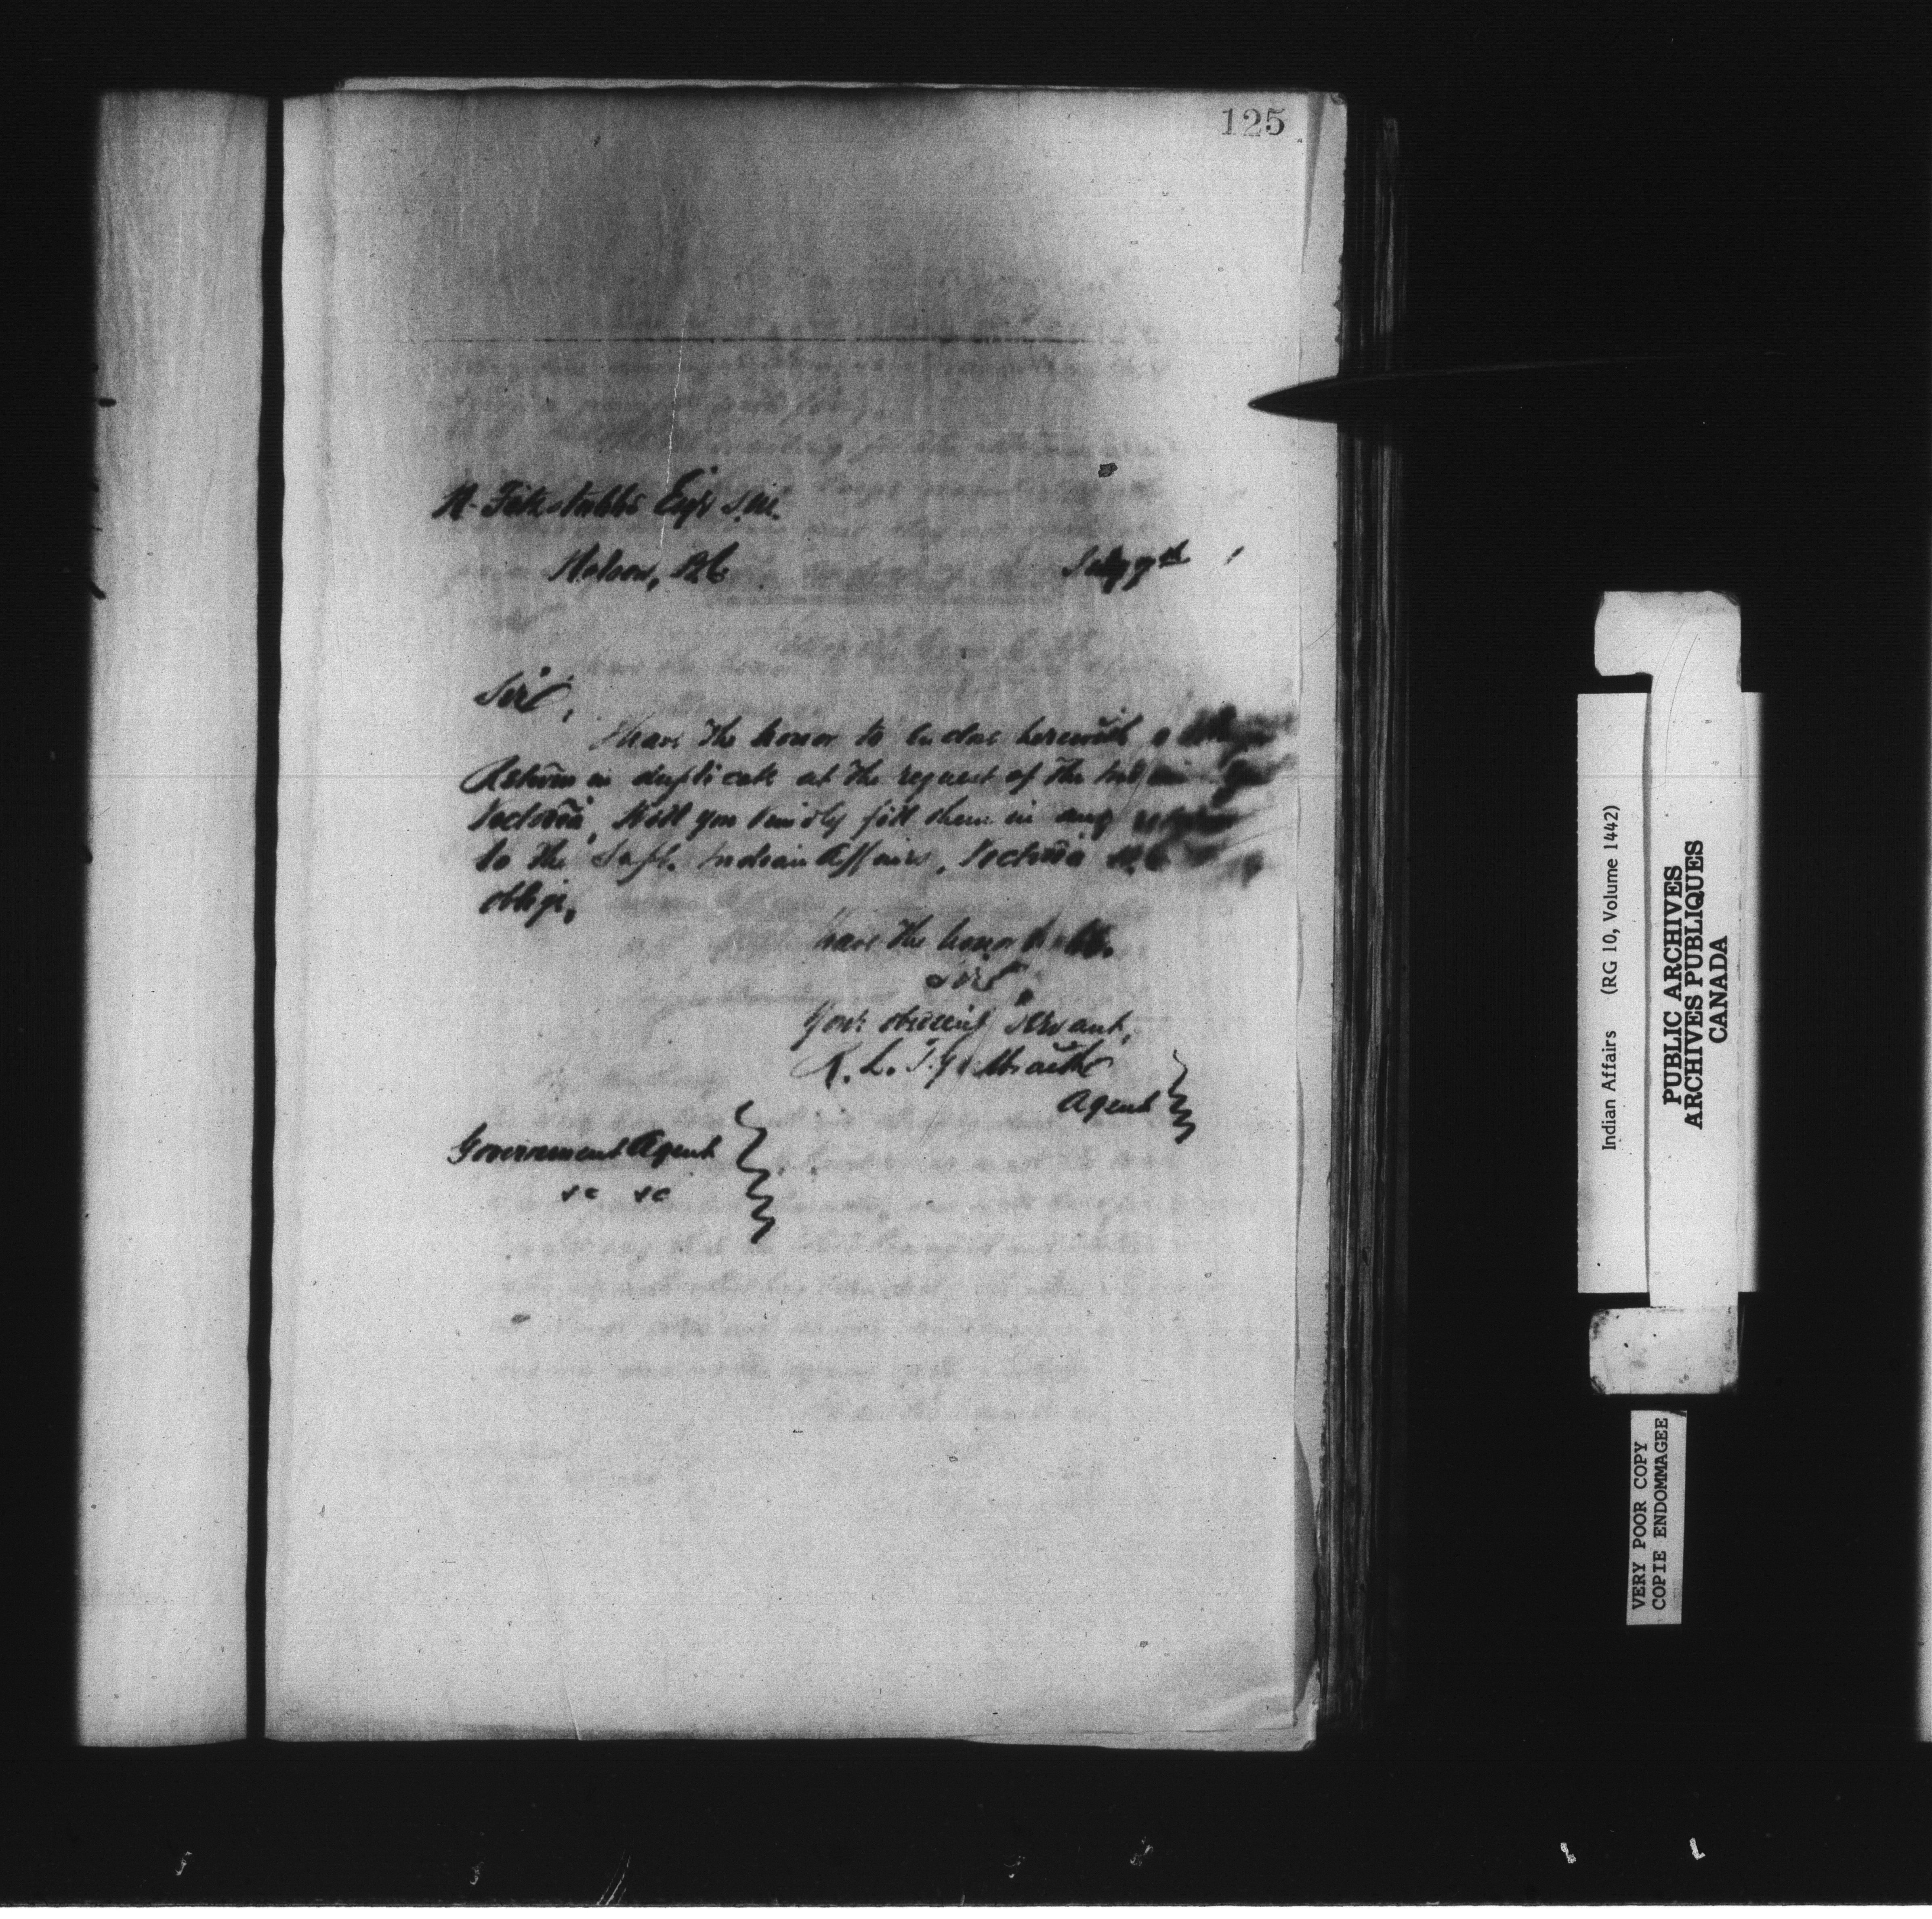 125
N. Fitzstubbs Esqr S.M.
Nelson, B.C.
July 9th
Sir,
I have the honor to enclose herewith a
Return in duplicate at the request of the
Victoria, Will you kindly fill them in and
to the Supt. Indian Affairs, Victoria B.C.
oblige,
have the honor to be.
Sir,
Your obedient servant,
R. L. T. Galbraith
Agent
Government Agent
&c &c
Indian Affairs (RG 10, Volume 1442)
PUBLIC ARCHIVES
ARCHIVES PUBLIQUES
CANADA
VERY POOR COPY
COPIE ENDOMMAGEE